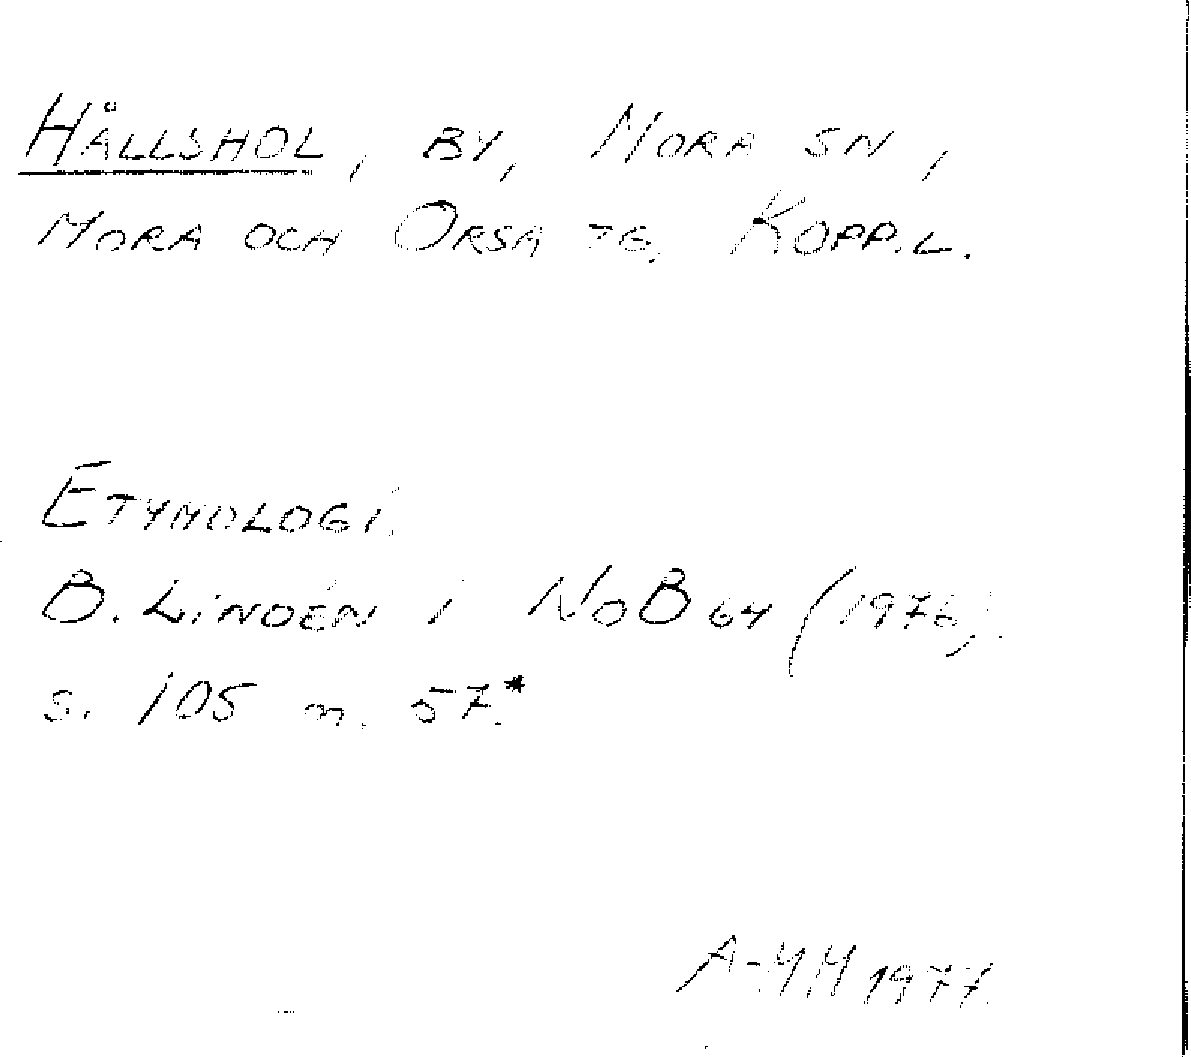 HÅLLSHOL, BY, MORA SN,
MORA OCH ORSA TG. KOPP.L.
ETYMOLOGI.
B. LINDÉN I NOB 64 (1976).
s. 105 n. 57.*
A-MM 1977.